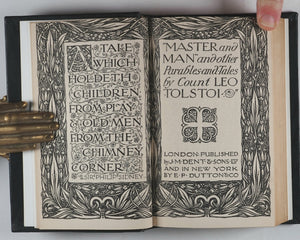 A TALE
WHICH
HOLDETH
CHILDREN
FROM PLAY
& OLD MEN
FROM THE
CHIMNEY
CORNER
SIR PHILIP SIDNEY
MASTER and
MAN and other
Parables and Tales
by Count LEO
TOLSTOI
LONDON: PUBLISHED
by J·M·DENT & SONS LTD
AND IN NEW YORK
BY E·P·DUTTON & CO